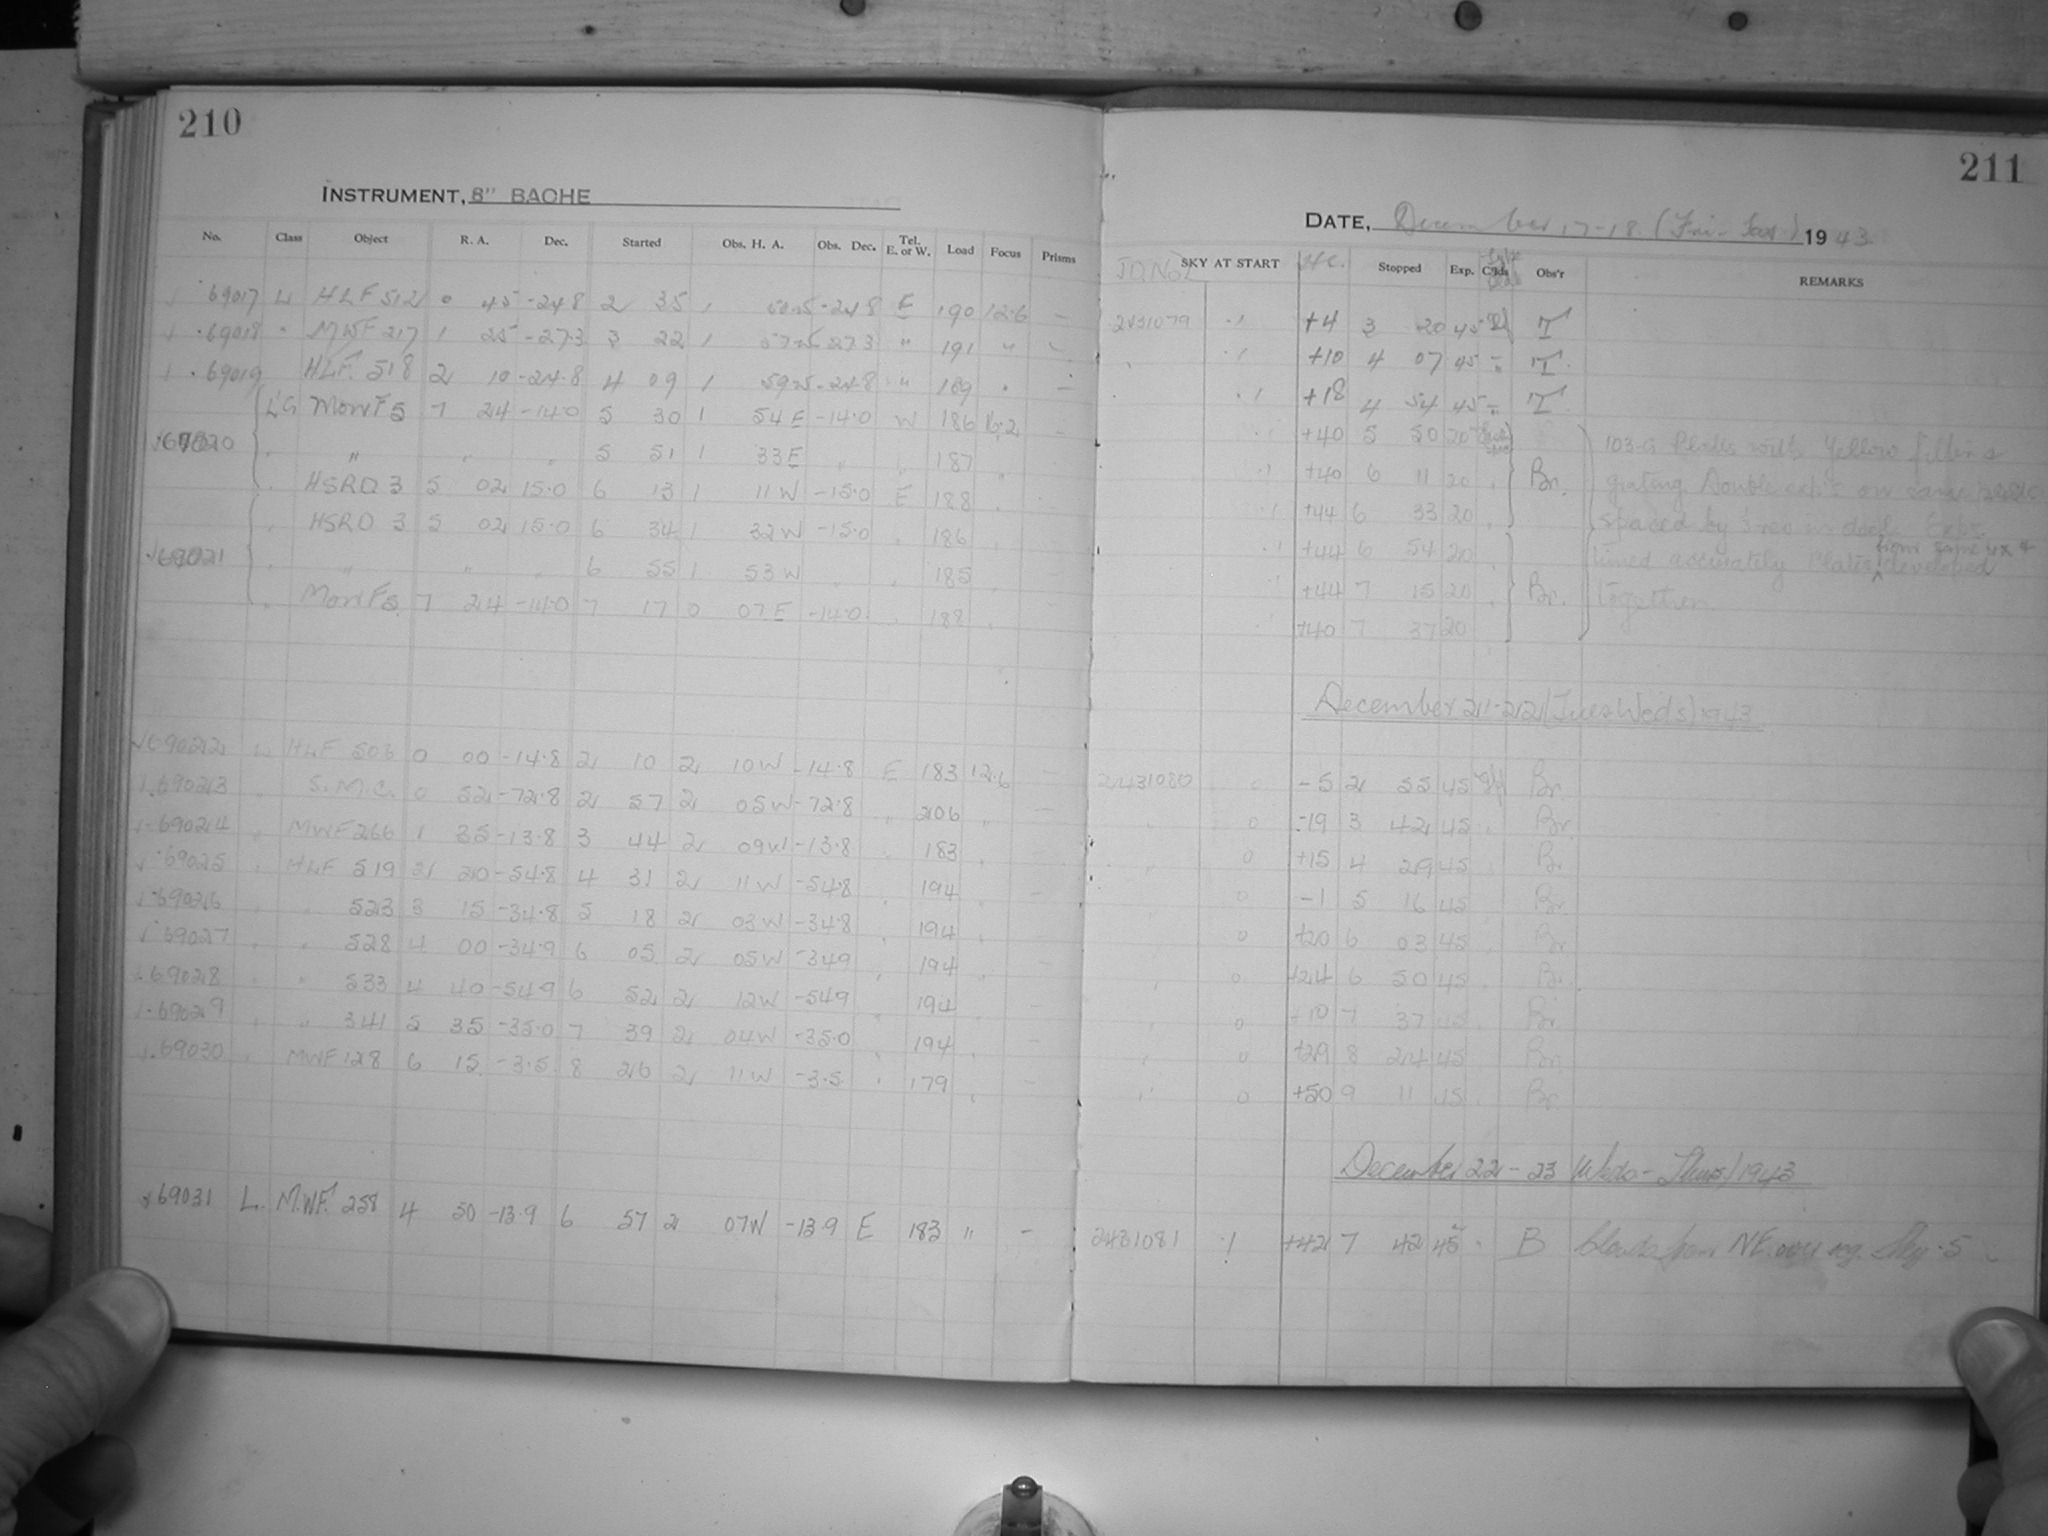 210
INSTRUMENT, 8" BACHE
No. Class Object R. A. Dec. Started Obs. H. A. Obs. Dec. Tel. E. or W. Load Focus Prisms
69017 L HLF 512 0 45 -24.8 2 35 1 -24.8 E 190 12.6 -
69018 " MWF 217 1 25 -27.3 3 22 1 27.3 " 191 " -
69019 HLF. 518 2 10 -24.8 4 09 1 -24.8 " 189 " -
LG MonF5 7 24 -14.0 5 30 1 54 E -14.0 W 186 -
69020 " " " 5 51 1 33 E " " 187
HSRD 3 5 02 15.0 6 13 1 11 W -15.0 E 188
HSRD 3 5 02 15.0 6 34 1 32 W -15.0 " 186
69021 " " " 6 55 1 53 W " " 185
MonF5 7 24 -14.0 7 17 0 07 E -14.0 " 188
69022 L HLF 503 0 00 -14.8 2 10 2 10 W -14.8 E 183 12.6 -
69023 " S.M.C. 0 52 -72.8 2 57 2 05 W -72.8 " 206 " -
69024 " MWF 266 1 35 -13.8 3 44 2 09 W -13.8 " 183 "
69025 " HLF 519 2 20 -54.8 4 31 2 11 W -54.8 " 194 " -
69026 " " 523 3 15 -34.8 5 18 2 03 W -34.8 " 194 " -
69027 " " 528 4 00 -34.9 6 05 2 05 W -34.9 " 194 " -
69028 " " 533 4 40 -54.9 6 52 2 12 W -54.9 " 194 " -
69029 " " 341 5 35 -35.0 7 39 2 04 W -35.0 " 194 " -
69030 " MWF 128 6 15 -3.5 8 26 2 11 W -3.5 " 179 " -
69031 L. M.W.F. 258 4 50 -13.9 6 57 2 07 W -13.9 E 183 " -
211
DATE, December 17-18 (Fri-Sat) 1943
J.D.No. SKY AT START H.C. Stopped Exp. Clds Obs'r REMARKS
2431079 .1 +4 3 20 45 T
" .1 +10 4 07 45 " T.
" .1 +18 4 54 45 " T.
.1 +40 5 50 20 103-G Plates with Yellow filter &
.1 +40 6 11 20 Br. grating Double exp's on same plate
.1 +44 6 33 20 spaced by
.1 +44 6 54 20 timed accurately Plates from same box & developed
.1 +44 7 15 20 Br. together.
.1 +40 7 37 20
December 21-22 (Tues-Weds) 1943
2431080 0 -5 2 55 45 Br.
" 0 -19 3 42 45 " Br.
" 0 +15 4 29 45 Br.
" 0 -1 5 16 45 Br.
" 0 +20 6 03 45 Br.
" 0 +24 6 50 45 Br.
" 0 +10 7 37 45 Br.
" 0 +29 8 24 45 Br.
" 0 +50 9 11 45 Br.
December 22-23 (Weds-Thurs) 1943
2431081 .1 +42 7 42 45 B Clouds from NE. Sky .5